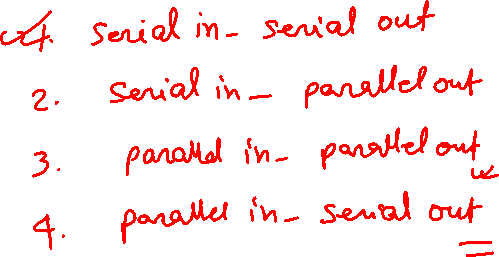 1. Serial in - serial out
2. Serial in - parallel out
3. parallel in - parallel out
4. parallel in - serial out